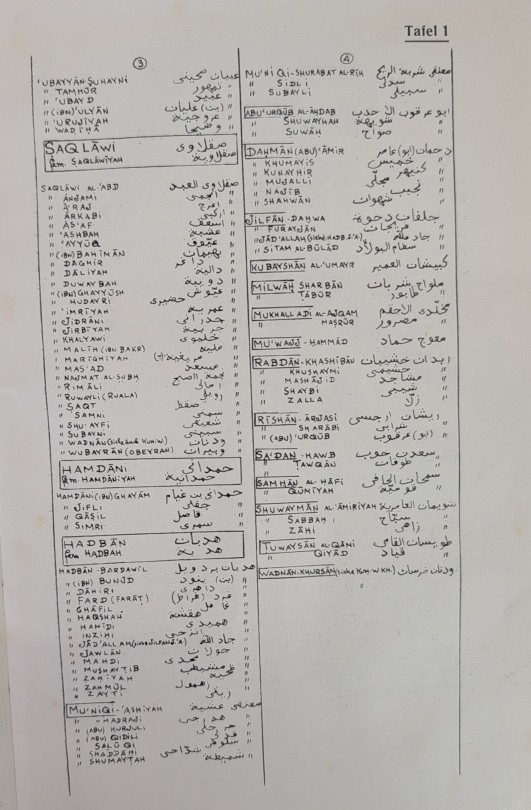 Tafel 1
③
'UBAYYĀN-ṢUHAYNI عبيان صحيني
" TAMHŪR " تمهور
" 'UBAYD " عبيد
" (IBN)'ULYĀN " (بن) عليان
" 'URUJĪYAH " عروجية
" WADĪḤA " وضيحا
ṢAQLĀWI صقلاوى
fem. SAQLĀWĪYAH صقلاوية
ṢAQLĀWI AL-'ABD صقلاوى العبد
" ANJAMI
" A'RAJ " اعرج
" ARKABI " اركبي
" AS'AF " اسعف
" 'ASHBAH " عشبه
" 'AYYŪ
" (IBN) BAHĪMĀN " بهيمان
" DĀGHIR " داغر
" DĀLIYAH " دالية
" DUWAYBAH " دويبة
" (IBN) GHAYYŪSH " غيوش
" HUDAYRI " حضيرى
" 'IMRĪYAH " عمرية
" JIDRĀNI " جدراني
" JIRBĪYAH " جربية
" KHALYAWI
" MALĪH (IBN BAKR) " مليه
" MARIGHIYAH
" MAS'AD " مسعد
" NAJMAT AL-SUBH " نجمة الصبح
" RIMĀLI " رمالي
" RUWAYLI (RUALA) " رويلي
" ṢAQT " صقط
" SAMNI " سمني
" SHU'AYFI " شعيفي
" SUBAYNI " سبيني
" WADNĀN " ودنان
" WUBAYRĀN (OBEYRAN) " وبيران
HAMDĀNI حمداني
fem. HAMDĀNĪYAH حمدانية
HAMDĀNI (IBN) GHAYĀM حمداني بن غيام
" JIFLI " جفلي
" QĀṢIL
" SIMRI " سمرى
HADBĀN هدبان
fem. HADBAH هدبة
HADBĀN-BARDAWĪL هدبان بردويل
" (IBN) BUNŪD " (بن) بنود
" DĀHIRI " داهرى
" FARD (FARĀT) " فرد
" GHĀFIL " غافل
" HAQSHAH " هقشة
" HAMĪDI " هميدى
" INZIHI " انزحي
" JĀD'ALLAH " جاد الله
" JAWLĀN " جولان
" MAHDI " مهدى
" MUSHAYTIB " مشيطب
" ZAHĪYAH
" ZAHMŪL " زهمول
" ZAYTI
MU'NIQI-'ASHĪYAH معنقي عشية
" -HADRAJI " هدرجي
" (ABU) HURJULI
" (ABU) QIDILI
" SALŪQI " سلوقي
" SHADDĀHI " شداحي
" SHUMAYTAH " شميطة
④
MU'NIQI-SHURABAT AL-RĪH معنقي شربة الريح
" SIDLI " سدلي
" SUBAYLI " سبيلي
ABU'URQŪB AL-AHDAB ابو عرقوب الاحدب
" SHUWAYHAH " شويهة
" SUWĀH " صواح
DAHMĀN (ABU)'ĀMIR دحمان (ابو) عامر
" KHUMAYIS " خميس
" KUNAYHIR " كنيهر
" MUJALLI " مجلّي
" NAJĪB " نجيب
" SHAHWĀN " شهوان
JILFĀN-DAHWA جلفان دحوة
" FURAYJĀN " فريجان
" JĀD'ALLAH " جاد الله
" SITAM AL-BŪLĀD " سطام البولاد
KUBAYSHĀN AL-'UMAYR كبيشان العمير
MILWĀH SHARBĀN ملواح شربان
" TĀBŪR " طابور
MUKHALLADI AL-AJQAM
" MAṢRŪR " مصرور
MU'WAJJ-HAMMĀD معوج حماد
RABDĀN-KHASHĪBĀN ربدان خشيبان
" KHUSHAYMI " خشيمي
" MASHĀJID
" SHAYBI " شيبي
" ZALLA " زلّا
RĪSHĀN-ARJASI ريشان ارجسي
" SHARĀBI " شرابي
" (ABU)'URQŪB " (ابو) عرقوب
SA'DĀN-HAWB سعدان حوب
" TAWQĀN " طوقان
SAMHĀN AL-HĀFI سمحان الحافي
" QŪMĪYAH " قومية
SHUWAYMĀN AL-'ĀMIRĪYAH شويمان العامرية
" SABBĀH " سبّاح
" ZĀHI " زاهي
TUWAYSĀN AL-QĀMI طويسان القامي
" QIYĀD " قياد
WADNĀN-KHURSĀN ودنان خرسان
"